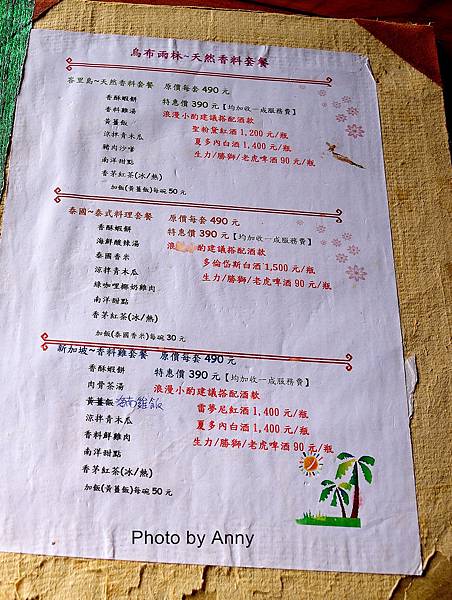 烏布雨林~天然香料套餐
峇里島~天然香料套餐 原價每套 490 元
香酥蝦餅 特惠價 390 元【均加收一成服務費】
香料雞湯 浪漫小酌建議搭配酒款
黃薑飯 聖粉黛紅酒 1,200 元/瓶
涼拌青木瓜 夏多內白酒 1,400 元/瓶
豬肉沙嗲 生力/勝獅/老虎啤酒 90 元/瓶
南洋甜點
香茅紅茶(冰/熱)
加飯(黃薑飯)每碗 50 元
泰國~泰式料理套餐 原價每套 490 元
香酥蝦餅 特惠價 390 元【均加收一成服務費】
海鮮酸辣湯 浪漫小酌建議搭配酒款
泰國香米 多倫岱斯白酒 1,500 元/瓶
涼拌青木瓜 生力/勝獅/老虎啤酒 90 元/瓶
綠咖哩椰奶雞肉
南洋甜點
香茅紅茶(冰/熱)
加飯(泰國香米)每碗 30 元
新加坡~香料雞套餐 原價每套 490 元
香酥蝦餅 特惠價 390 元【均加收一成服務費】
肉骨茶湯 浪漫小酌建議搭配酒款
黃薑飯 海南雞飯 雷夢尼紅酒 1,400 元/瓶
涼拌青木瓜 夏多內白酒 1,400 元/瓶
香料鮮雞肉 生力/勝獅/老虎啤酒 90 元/瓶
南洋甜點
香茅紅茶(冰/熱)
加飯(黃薑飯)每碗 50 元
Photo by Anny